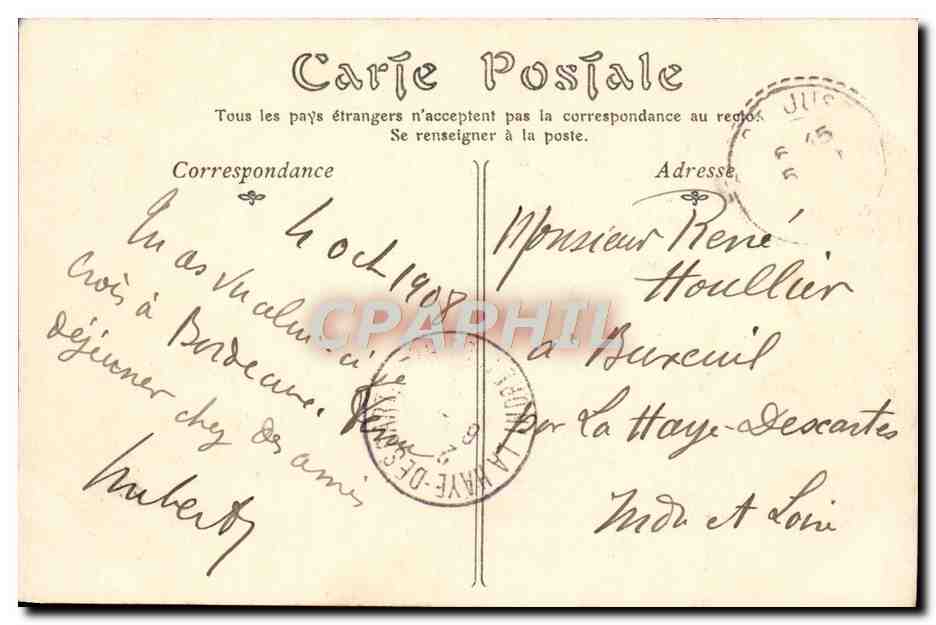 Carte Postale
Tous les pays étrangers n'acceptent pas la correspondance au recto.
Se renseigner à la poste.
Correspondance
4 oct 1908
Tu as celui-ci je
crois à Bordeaux. Venu
déjeuner chez des amis
Hubert
Adresse
Monsieur René
Houllier
à Buxeuil
par La Haye-Descartes
Indre et Loire
JUS
15
LA HAYE-DESCARTES
CPAPHIL